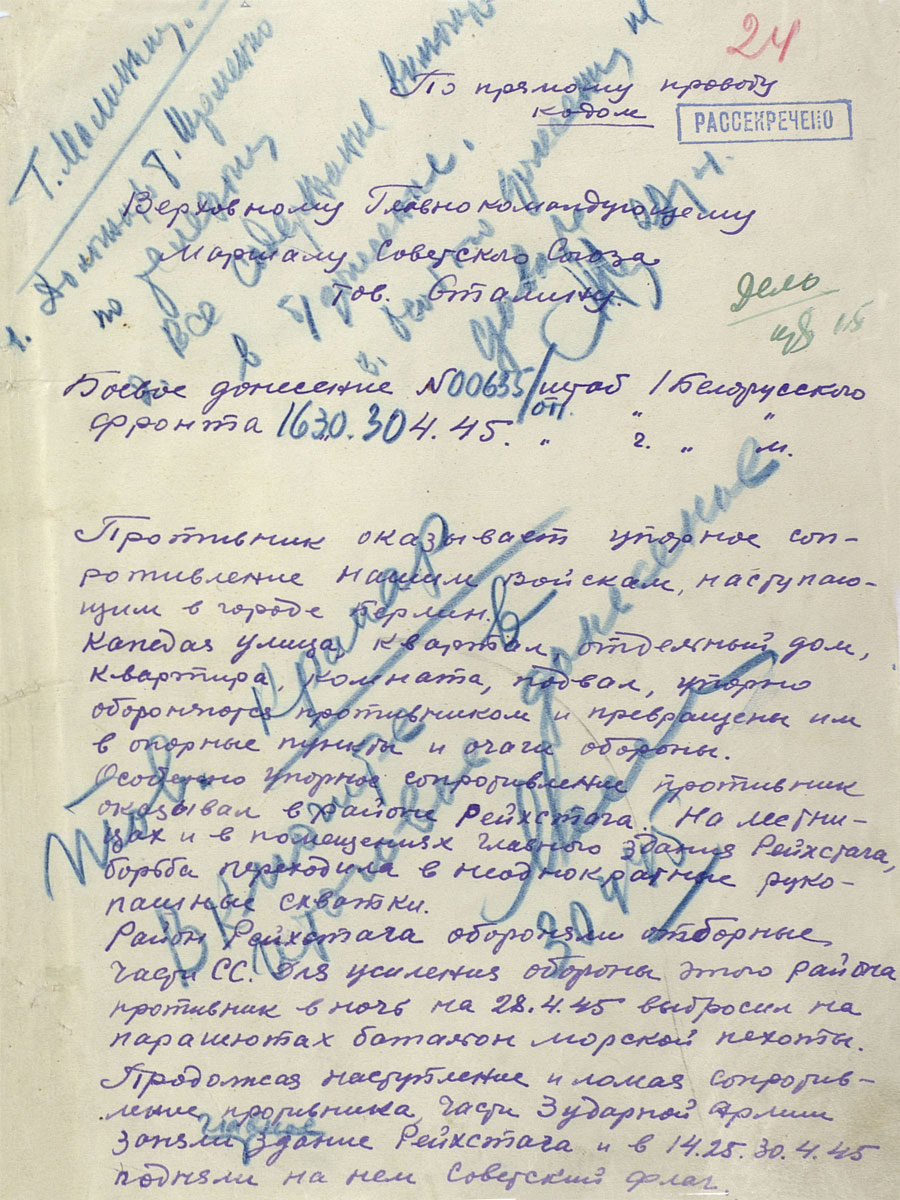 24
По прямому проводу
кодом
РАССЕКРЕЧЕНО
Верховному Главнокомандующему
Маршалу Советского Союза
тов. Сталину.
Дело
Боевое донесение №00635/оп. штаб 1 Белорусского
фронта 16 30. 30 4.45. " ч. " м.
Противник оказывает упорное соп-
ротивление нашим войскам, наступаю-
щим в городе Берлин.
Каждая улица, квартал, отдельный дом,
квартира, комната, подвал, упорно
обороняются противником и превращены им
в опорные пункты и очаги обороны.
Особенно упорное сопротивление противник
оказывал в районе Рейхстага. На лестни-
цах и в помещениях главного здания Рейхстага,
борьба переходила в неоднократные руко-
пашные схватки.
Район Рейхстага обороняли отборные
части СС. Для усиления обороны этого района
противник в ночь на 28.4.45 выбросил на
парашютах батальон морской пехоты.
Продолжая наступление и ломая сопротив-
ление противника, части 3 ударной Армии
заняли главное здание Рейхстага и в 14.25. 30.4.45
подняли на нем Советский флаг.